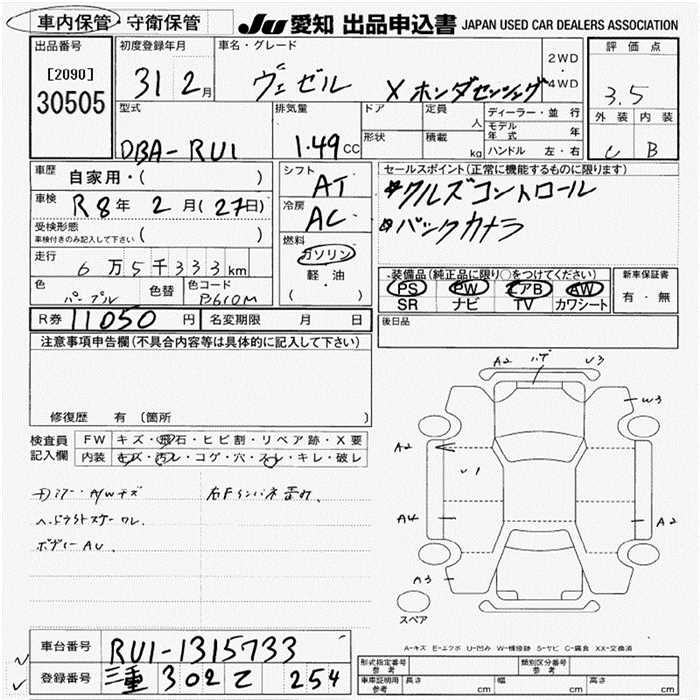 車内保管・守衛保管
JU 愛知 出品申込書 JAPAN USED CAR DEALERS ASSOCIATION
出品番号
[2090]
30505
初度登録年月
31 2月
車名・グレード
ヴェゼル X ホンダセンシング
2WD
・
4WD
評価点
3.5
外装 内装
C B
型式
DBA-RU1
排気量
1.49 CC
ドア
形状
定員
人
積載
kg
ディーラー・並行
モデル年式 年
ハンドル 左・右
車歴
自家用・( )
車検
R8年 2月(27日)
受検形態
車検付きのみ記入して下さい ( )
走行
6万5千333km
色
パープル
色替
色コード
PB610M
シフト
AT
冷房
AC
燃料
ガソリン
軽・油
( )
セールスポイント(正常に機能するものに限ります)
*クルズコントロール
*バックカメラ
装備品(純正品に限り○をつけてください)
PS PW エアB AW
SR ナビ TV カワシート
新車保証書
有・無
R券 11050円
名変期限 月 日
後日品
注意事項申告欄(不具合内容等は具体的に記入して下さい)
修復歴 有(箇所 )
検査員
記入欄
FW キズ・飛石・ヒビ割・リペア跡・X要
内装 キズ・汚レ・コゲ・穴・スレ・キレ・破レ
ヘッドライトスケーワレ.
ボディーAU.
A2 ハゲ U3
W3
A2
U1
A4
A2
A3
スペア
A-キズ E-エクボ U-凹み W-補修跡 S-サビ C-腐食 XX-交換済
車台番号
RU1-1315733
登録番号
三重 302 て 254
形式指定番号
参考
類別区分番号
参考
車庫証明用
参考
長さ cm
幅 cm
高さ cm